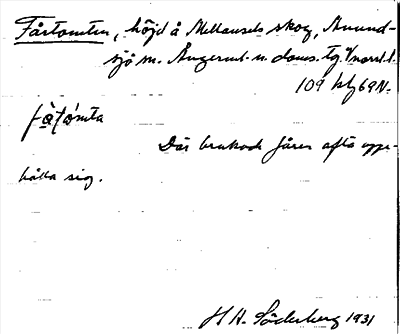 Fårtomten, höjd å Mellansels skog, Anund-
sjö sn. Ångerml. n. doms. tg. V/norrl. l.
109 kbf 69 N.
få̀ʈómta
Där brukade fåren ofta uppe-
hålla sig.
H A. Söderberg 1931